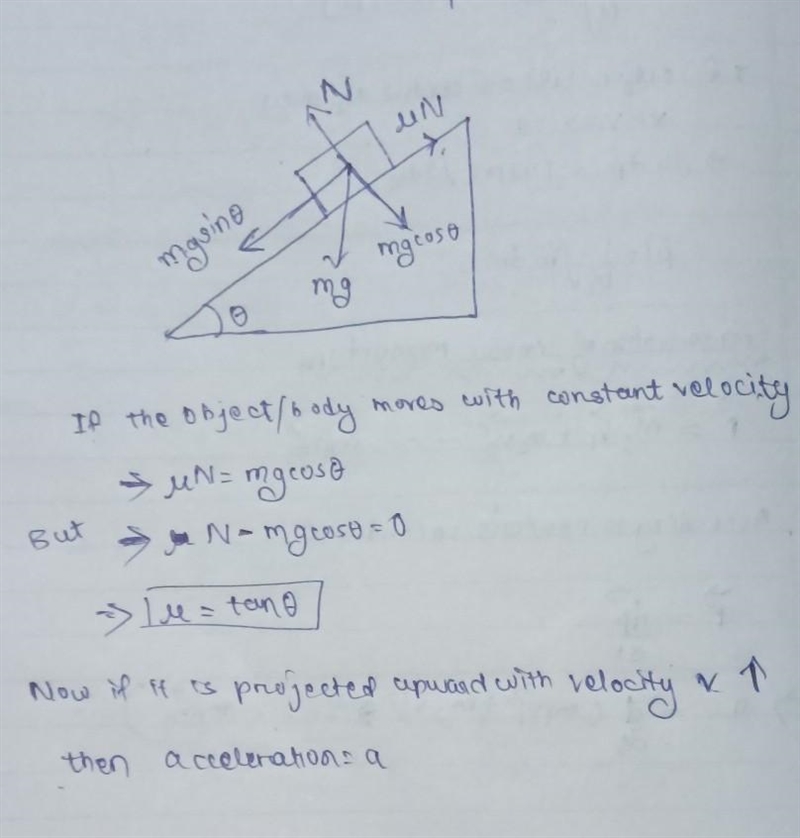 N
μN
mgsinθ
mgcosθ
mg
θ
If the object/body moves with constant velocity
⇒ μN = mgcosθ
But ⇒ N - mgcosθ = 0
⇒ μ = tanθ
Now if it is projected upward with velocity v ↑
then acceleration = a